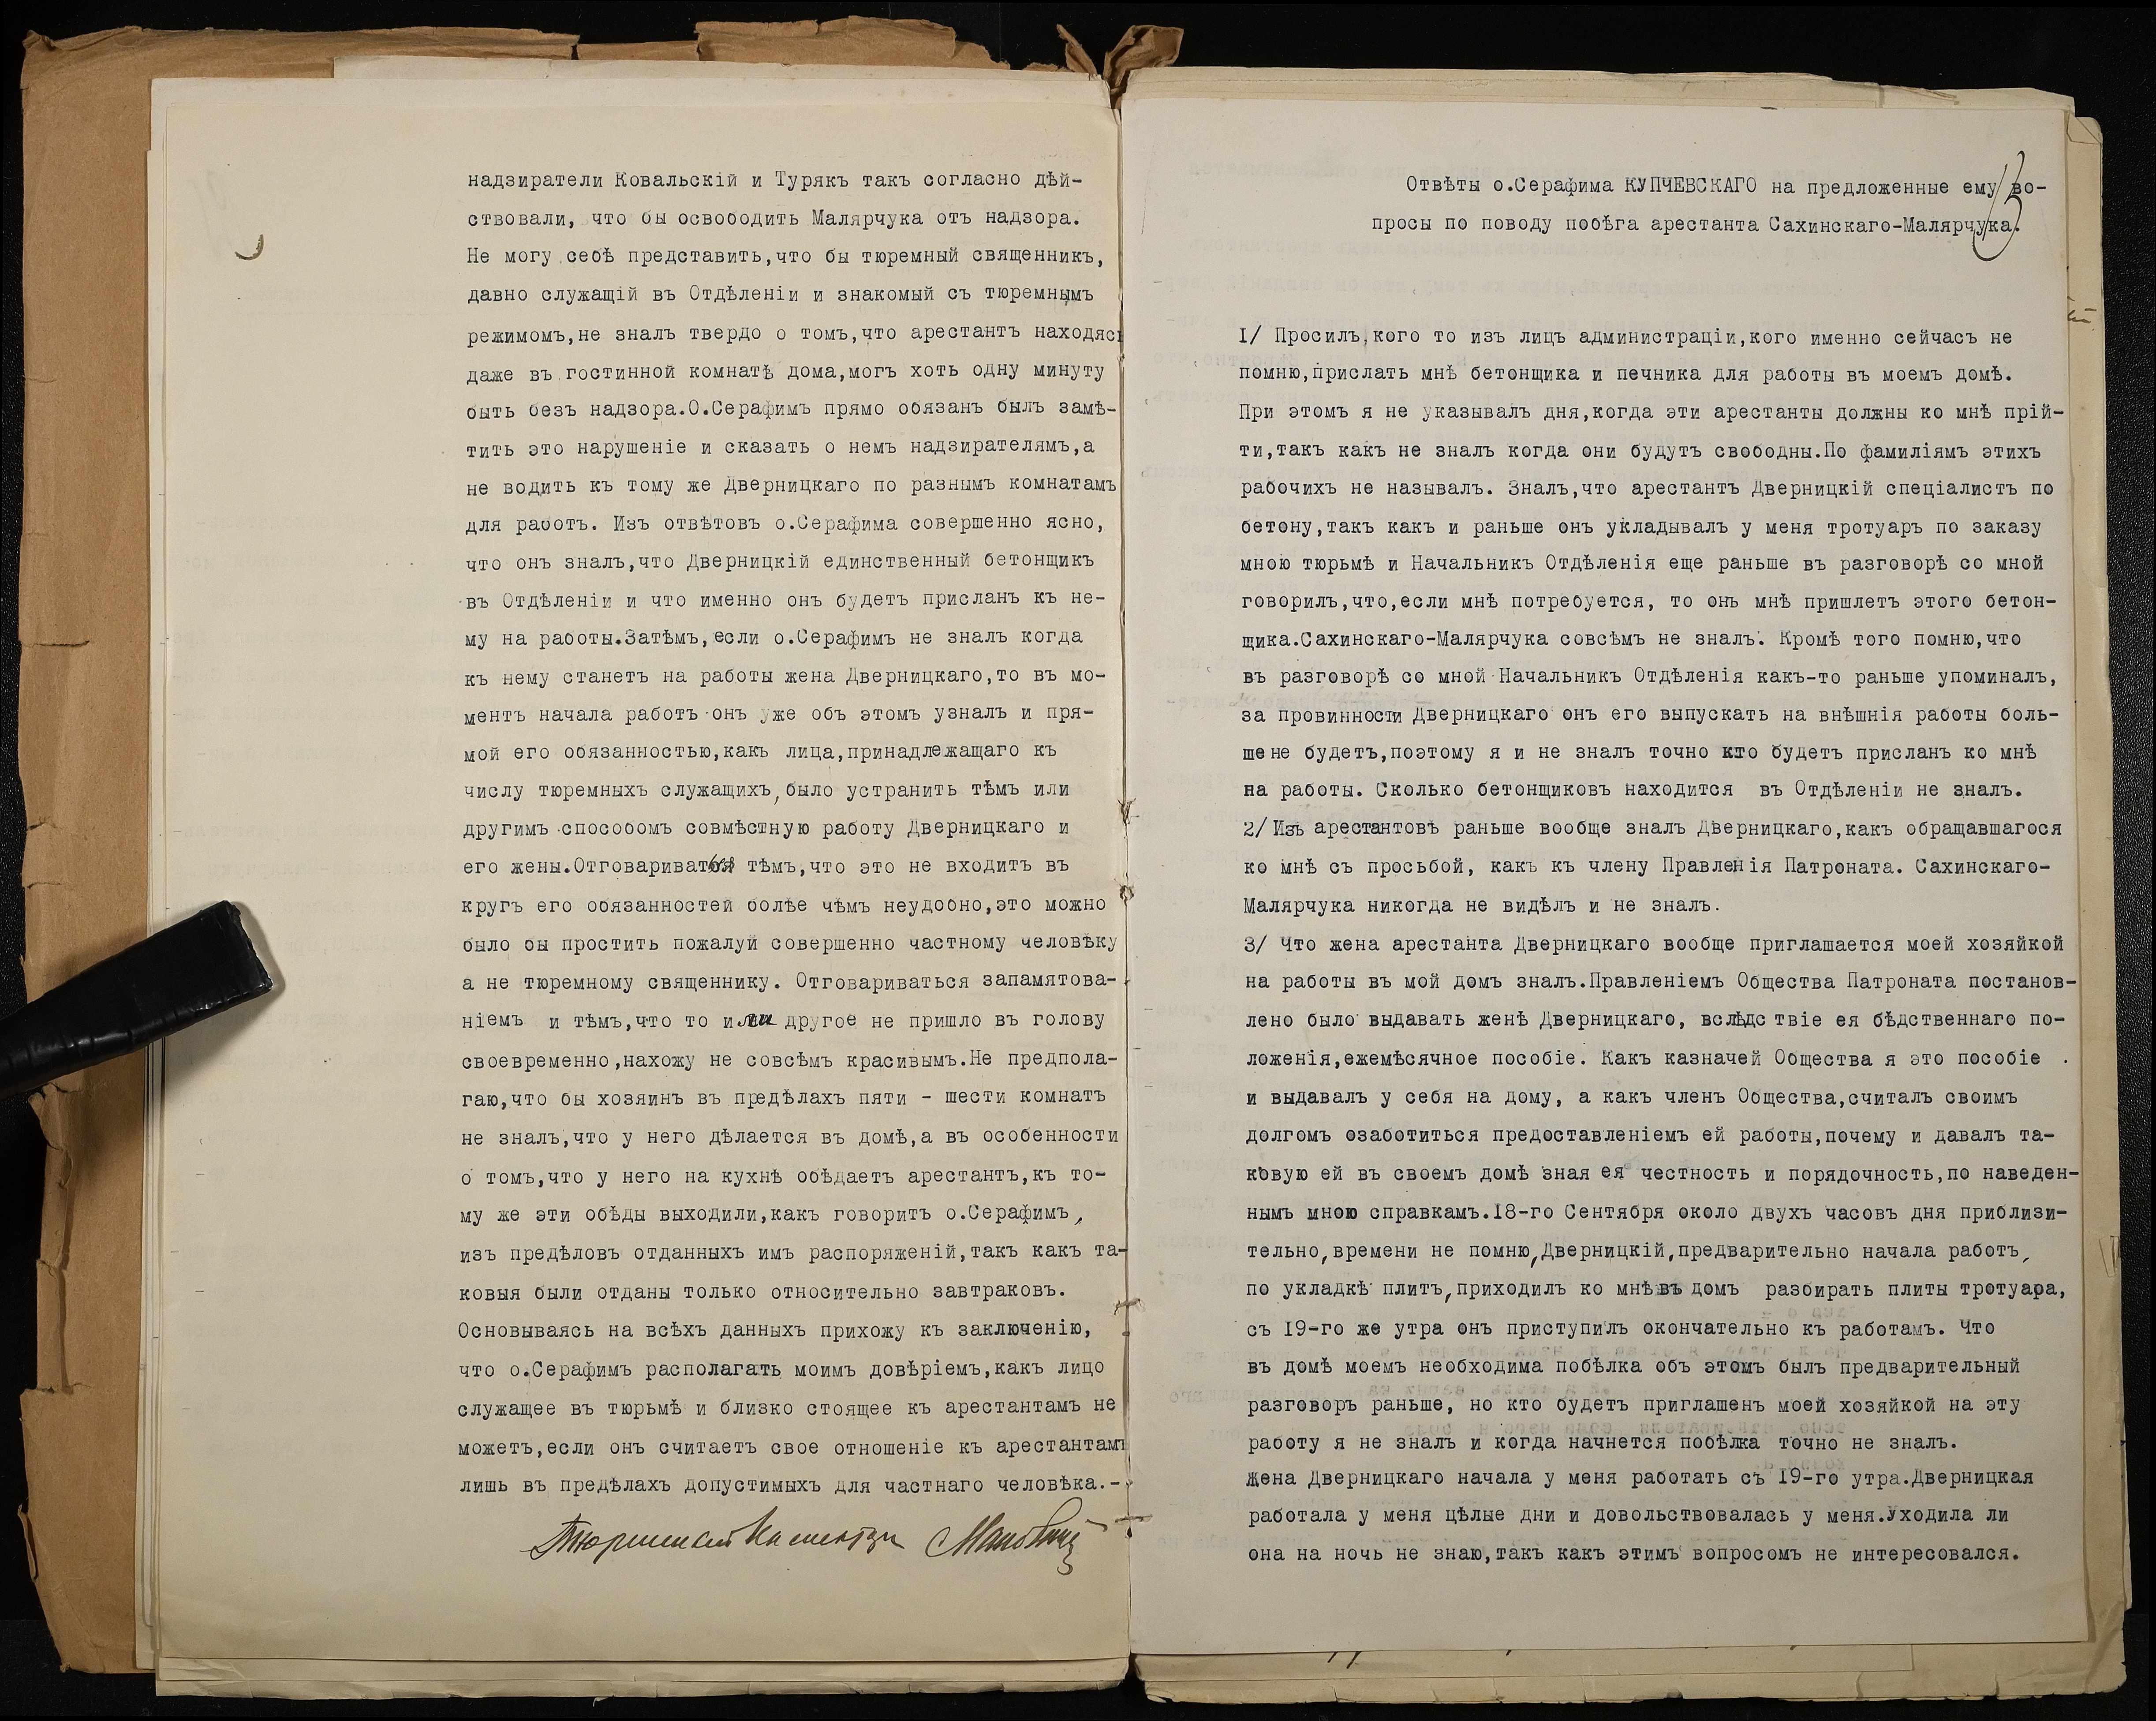 надзиратели Ковальскій и Турякъ такъ согласно дѣй-
ствовали, что бы освободить Малярчука отъ надзора.
Не могу себѣ представить,что бы тюремный священникъ,
давно служащій въ Отдѣленіи и знакомый съ тюремнымъ
режимомъ,не зналъ твердо о томъ,что арестантъ находясь
даже въ гостинной комнатѣ дома,могъ хоть одну минуту
быть безъ надзора.О.Серафимъ прямо обязанъ былъ замѣ-
тить это нарушеніе и сказать о немъ надзирателямъ,а
не водить къ тому же Дверницкаго по разнымъ комнатамъ
для работъ. Изъ отвѣтовъ о.Серафима совершенно ясно,
что онъ зналъ,что Дверницкій единственный бетонщикъ
въ Отдѣленіи и что именно онъ будетъ присланъ къ не-
му на работы.Затѣмъ,если о.Серафимъ не зналъ когда
къ нему станетъ на работы жена Дверницкаго,то въ мо-
ментъ начала работъ онъ уже объ этомъ узналъ и пря-
мой его обязанностью,какъ лица,принадлежащаго къ
числу тюремныхъ служащихъ,было устранить тѣмъ или
другимъ способомъ совмѣстную работу Дверницкаго и
его жены.Отговариваться тѣмъ,что это не входитъ въ
кругъ его обязанностей болѣе чѣмъ неудобно,это можно
было бы простить пожалуй совершенно частному человѣку
а не тюремному священнику. Отговариваться запамятова-
ніемъ и тѣмъ,что то или другое не пришло въ голову
своевременно,нахожу не совсѣмъ красивымъ.Не предпола-
гаю,что бы хозяинъ въ предѣлахъ пяти - шести комнатъ
не зналъ,что у него дѣлается въ домѣ,а въ особенности
о томъ,что у него на кухнѣ обѣдаетъ арестантъ,къ то-
му же эти обѣды выходили,какъ говоритъ о.Серафимъ,
изъ предѣловъ отданныхъ имъ распоряженій,такъ какъ та-
ковыя были отданы только относительно завтраковъ.
Основываясь на всѣхъ данныхъ прихожу къ заключенію,
что о.Серафимъ располагать моимъ довѣріемъ,какъ лицо
служащее въ тюрьмѣ и близко стоящее къ арестантамъ не
можетъ,если онъ считаетъ свое отношеніе къ арестантамъ
лишь въ предѣлахъ допустимыхъ для частнаго человѣка.-
Тюремный Инспекторъ
13
Отвѣты о.Серафима КУПЧЕВСКАГО на предложенные ему во-
просы по поводу побѣга арестанта Сахинскаго-Малярчука.
I/ Просилъ,кого то изъ лицъ администраціи,кого именно сейчасъ не
помню,прислать мнѣ бетонщика и печника для работы въ моемъ домѣ.
При этомъ я не указывалъ дня,когда эти арестанты должны ко мнѣ прій-
ти,такъ какъ не зналъ когда они будутъ свободны.По фамиліямъ этихъ
рабочихъ не называлъ. Зналъ,что арестантъ Дверницкій спеціалистъ по
бетону,такъ какъ и раньше онъ укладывалъ у меня тротуаръ по заказу
мною тюрьмѣ и Начальникъ Отдѣленія еще раньше въ разговорѣ со мной
говорилъ,что,если мнѣ потребуется, то онъ мнѣ пришлетъ этого бетон-
щика.Сахинскаго-Малярчука совсѣмъ не зналъ. Кромѣ того помню,что
въ разговорѣ со мной Начальникъ Отдѣленія какъ-то раньше упоминалъ,
за провинности Дверницкаго онъ его выпускать на внѣшнія работы боль-
ше не будетъ,поэтому я и не зналъ точно кто будетъ присланъ ко мнѣ
на работы. Сколько бетонщиковъ находится въ Отдѣленіи не зналъ.
2/ Изъ арестантовъ раньше вообще зналъ Дверницкаго,какъ обращавшагося
ко мнѣ съ просьбой, какъ къ члену Правленія Патроната. Сахинскаго-
Малярчука никогда не видѣлъ и не зналъ.
3/ Что жена арестанта Дверницкаго вообще приглашается моей хозяйкой
на работы въ мой домъ зналъ.Правленіемъ Общества Патроната постанов-
лено было выдавать женѣ Дверницкаго, вслѣдствіе ея бѣдственнаго по-
ложенія,ежемѣсячное пособіе. Какъ казначей Общества я это пособіе
и выдавалъ у себя на дому, а какъ членъ Общества,считалъ своимъ
долгомъ озаботиться предоставленіемъ ей работы,почему и давалъ та-
ковую ей въ своемъ домѣ зная ея честность и порядочность,по наведен-
нымъ мною справкамъ.18-го Сентября около двухъ часовъ дня приблизи-
тельно,времени не помню,Дверницкій,предварительно начала работъ,
по укладкѣ плитъ,приходилъ ко мнѣ въ домъ разбирать плиты тротуара,
съ 19-го же утра онъ приступилъ окончательно къ работамъ. Что
въ домѣ моемъ необходима побѣлка объ этомъ былъ предварительный
разговоръ раньше, но кто будетъ приглашенъ моей хозяйкой на эту
работу я не зналъ и когда начнется побѣлка точно не зналъ.
Жена Дверницкаго начала у меня работать съ 19-го утра.Дверницкая
работала у меня цѣлые дни и довольствовалась у меня.Уходила ли
она на ночь не знаю,такъ какъ этимъ вопросомъ не интересовался.